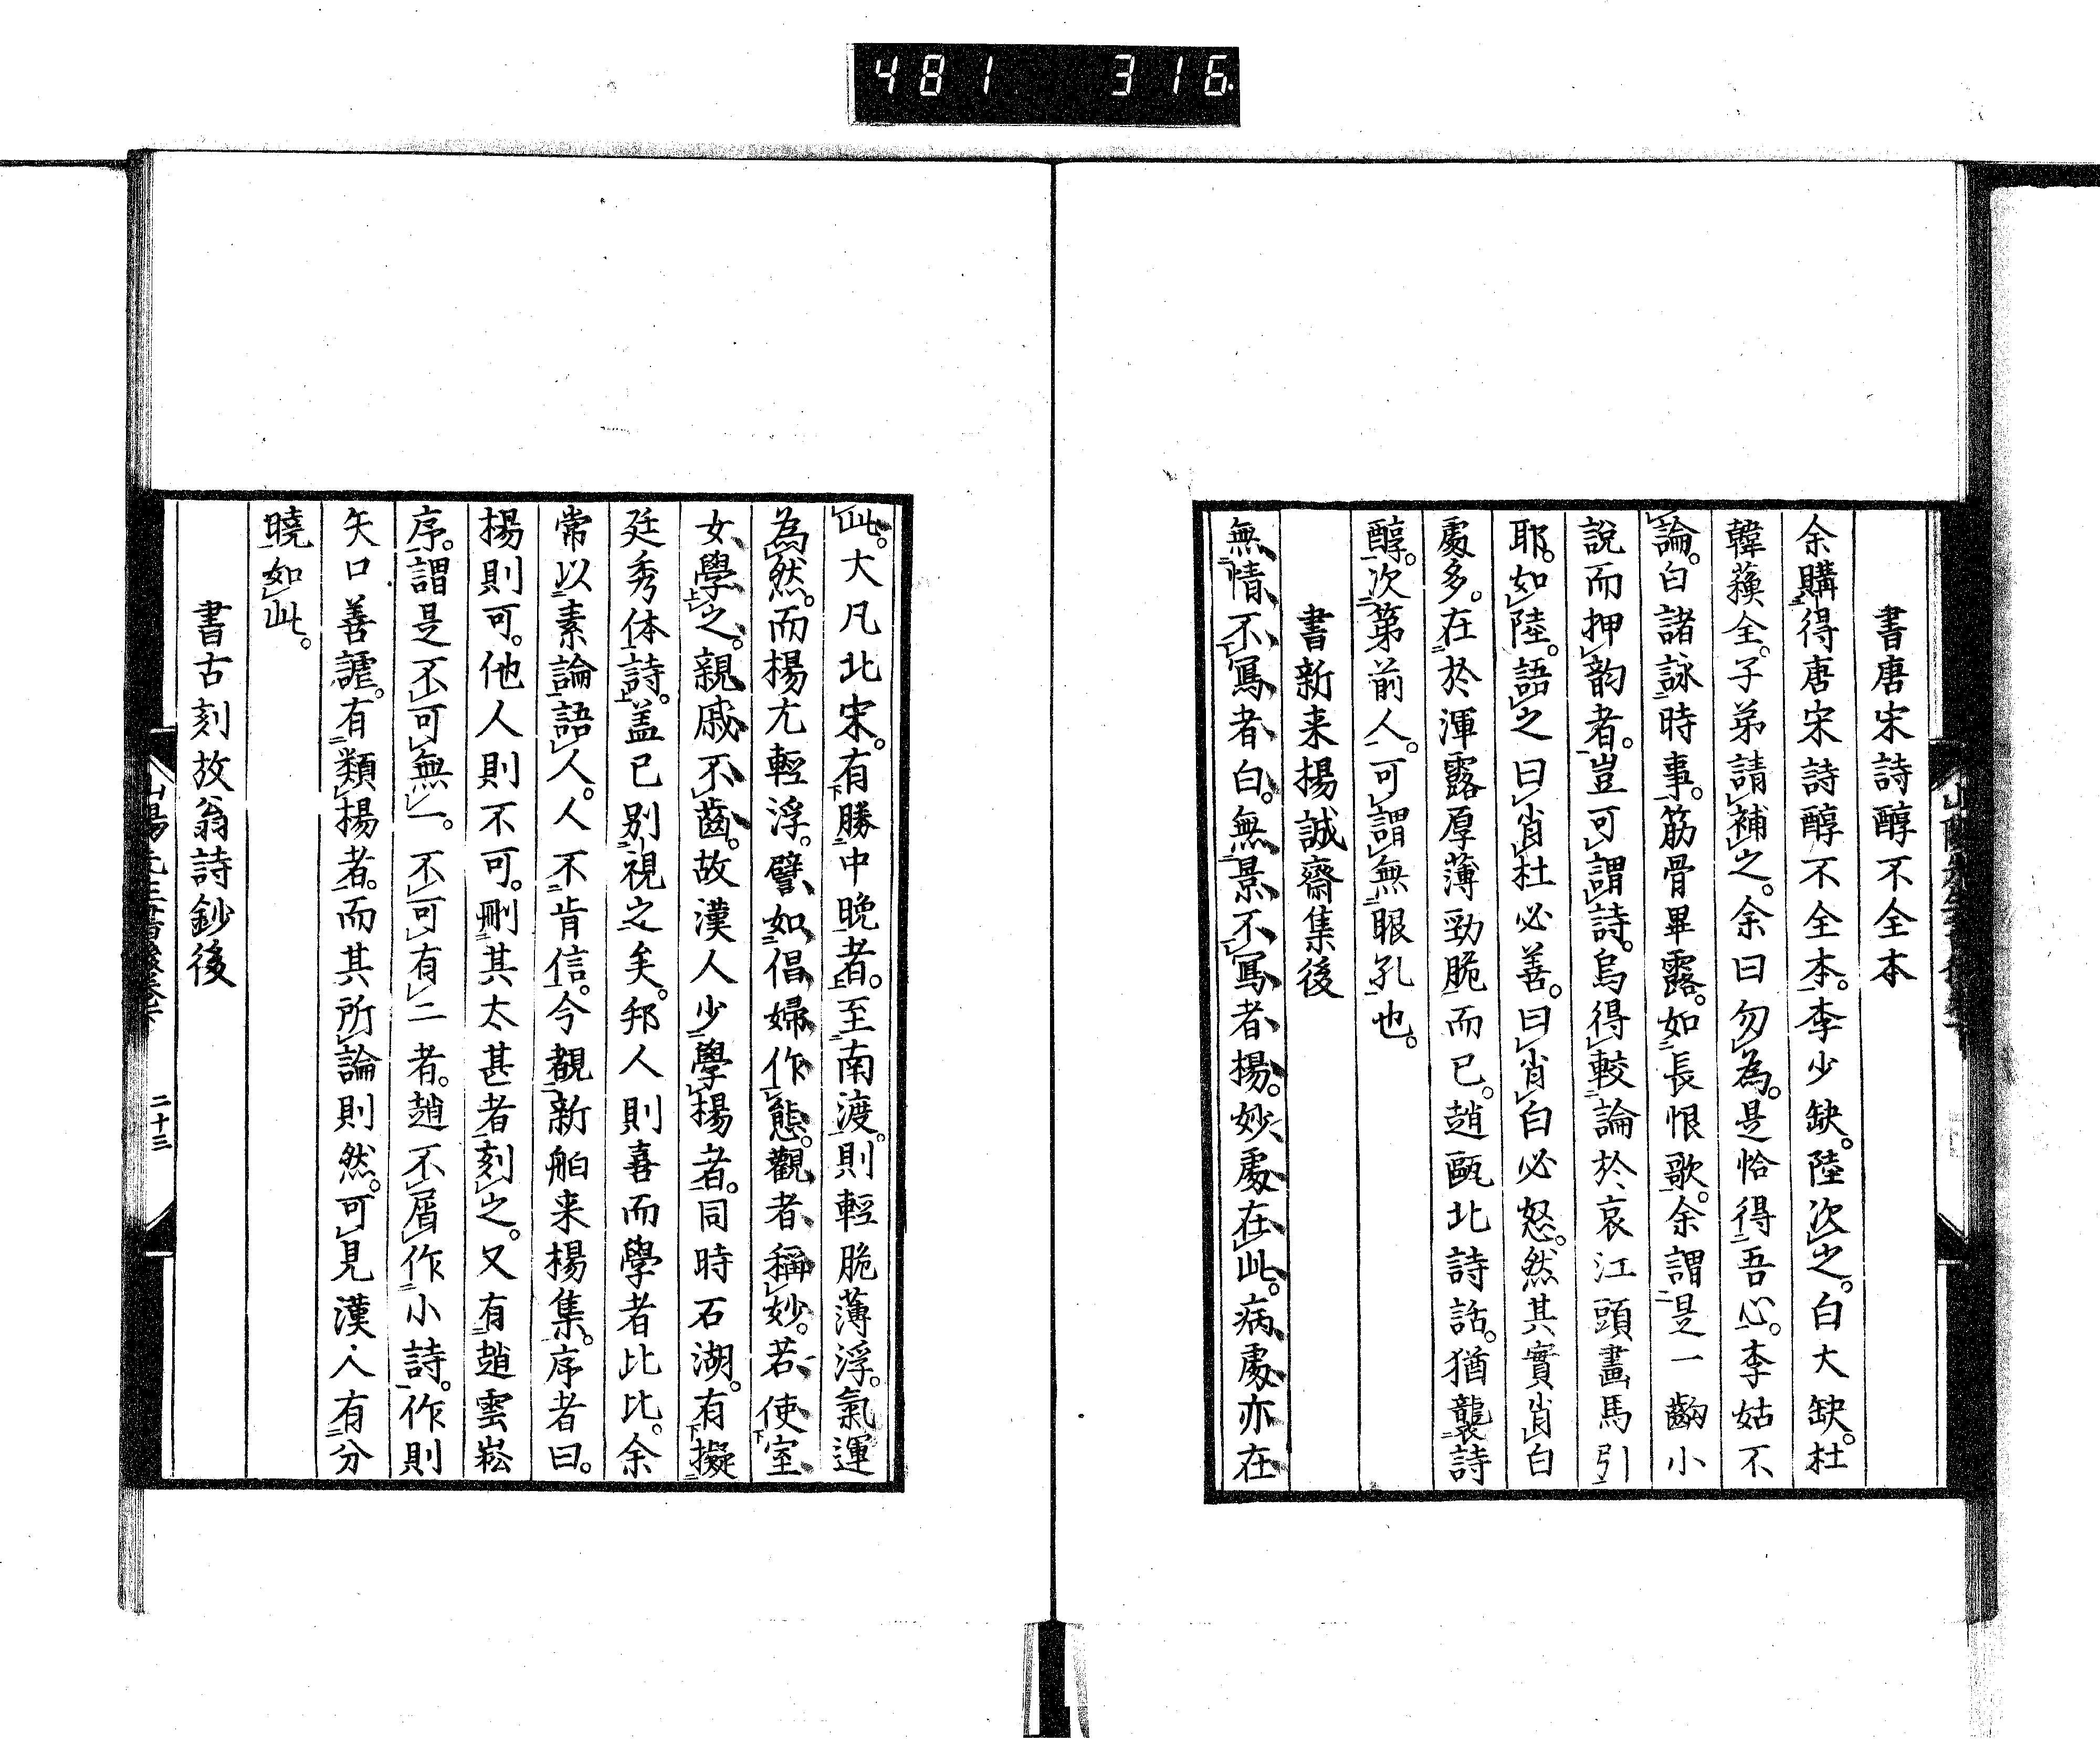 481 316
書唐宋詩醇不全本
余購得唐宋詩醇不全本。李少缺。陸次之。白大缺。杜
韓蘓全。子弟請補之。余曰勿為。是恰得吾心。李姑不
論。白諸詠時事。筋骨畢露。如長恨歌。余謂是一齣小
說而押韵者。豈可謂詩。烏得較論於哀江頭畫馬引
耶。如陸。語之曰肖杜必善。曰肖白必怒。然其實肖白
處多。在於渾露厚薄勁脆而已。趙甌北詩話。猶襲詩
醇。次第前人。可謂無眼孔也。
書新来楊誠齋集後
無情不寫者白。無景不寫者楊。妙處在此。病處亦在
此。大凡北宋。有勝中晚者。至南渡。則輕脆薄浮。氣運
為然。而楊尤輕浮。譬如倡婦作態。觀者稱妙。若使室
女學之。親戚不齒。故漢人少學楊者。同時石湖。有擬
廷秀体詩。盖已别視之矣。邦人則喜而學者比比。余
常以素論語人。人不肯信。今覩新舶来楊集。序者曰。
楊則可。他人則不可。刪其太甚者刻之。又有趙雲崧
序。謂是不可無一。不可有二者。趙不屑作小詩。作則
矢口善謔。有類楊者。而其所論則然。可見漢人有分
曉如此。
書古刻放翁詩鈔後
二十三